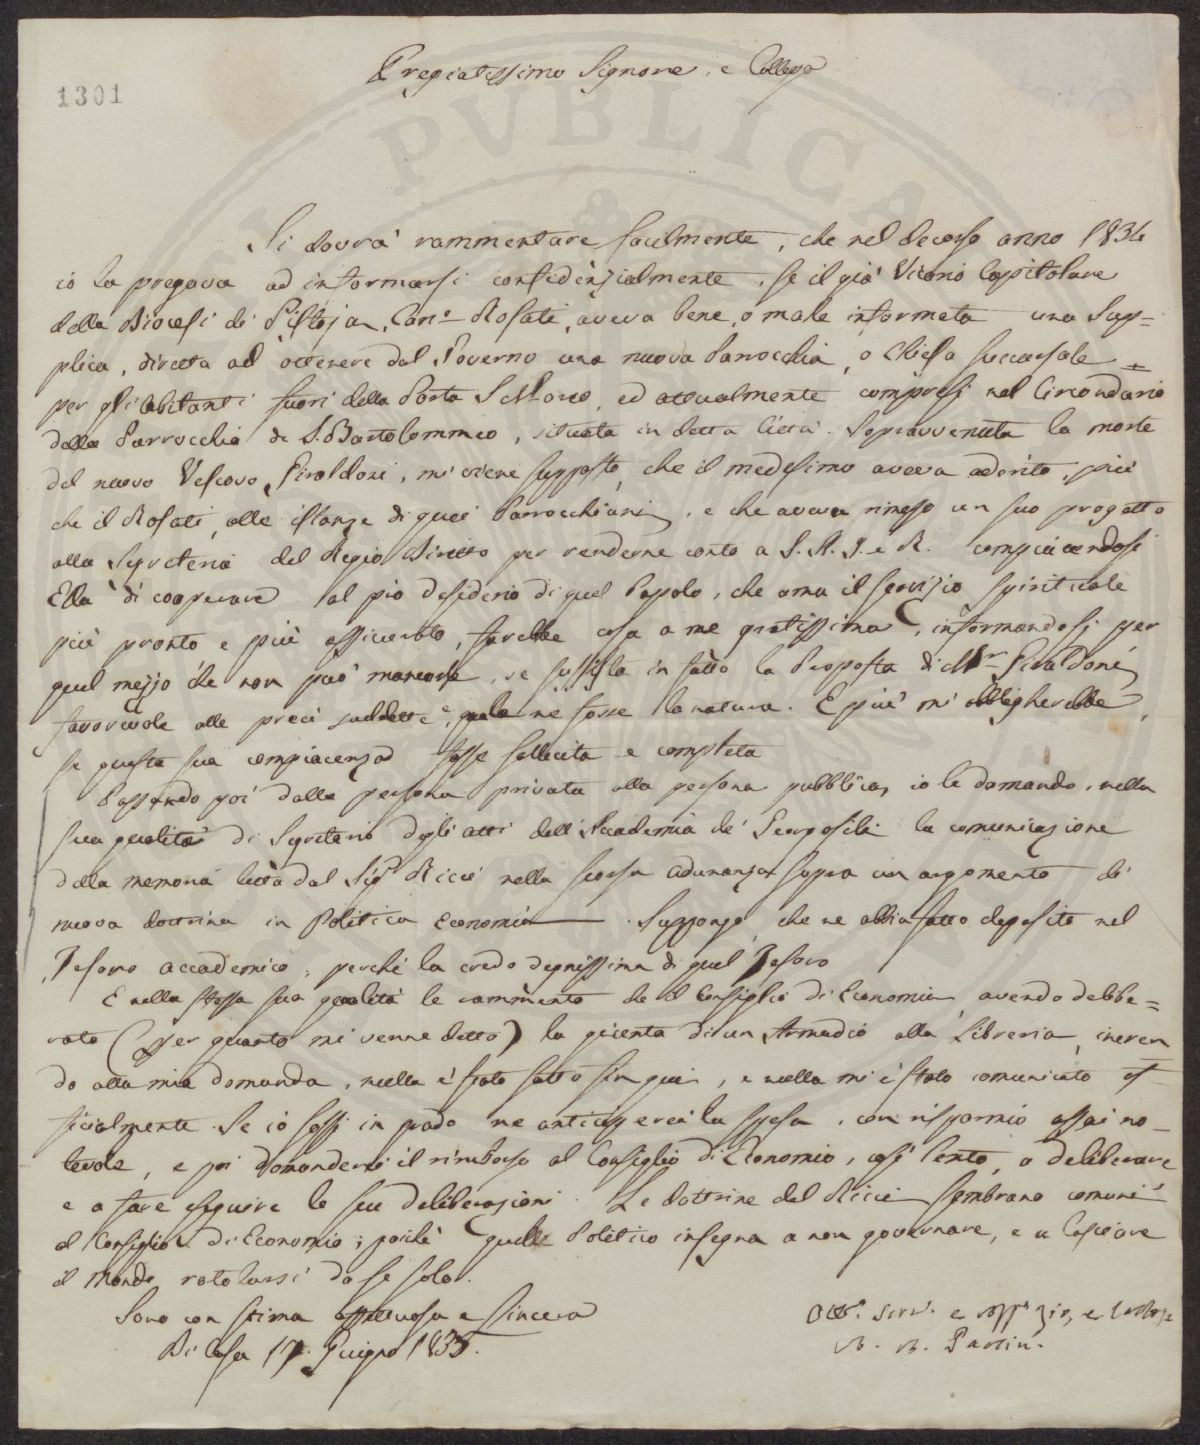 Pregiatissimo Signore, e Collega
1301
Si dovrà rammentare facilmente, che nel decorso anno 1834
io la pregava ad informarsi confidenzialmente, se il già Vicario Capitolare
della Diocesi di Pistoja, Can.º Rosati, aveva bene, o male informata una Sup=
plica, diretta ad ottenere dal Governo una nuova Parrocchia, o Chiesa succursale
per gli abitanti fuori della Porta S. Marco, ed attualmente compresi nel Circondario
della Parrocchia di S. Bartolommeo, situata in detta Città. Sopravvenuta la morte
del nuovo Vescovo Giraldoni, mi viene supposto, che il medesimo aveva aderito, più
che il Rosati, alle istanze di quei Parrocchiani, e che aveva rimesso un suo progetto
alla Segreteria del Regio Diritto per renderne conto a S. A. I. e R. compiacendosi
Ella di cooperare al pio desiderio di quel Popolo, che ama il servizio spirituale
più pronto e più assicurato, sarebbe cosa a me gratissima, informandosi per
quel mezzo che non può mancarle, se sussista in fatto la Proposta di Mr. Giraldoni
favorevole alle preci suddette e quale ne fosse la natura. E più mi obbligherebbe,
se questa sua compiacenza fosse sollecita e completa
Passando poi dalla persona privata alla persona pubblica, io le domando, nella
sua qualità di Segretario degli atti dell'Accademia de' Georgofili la comunicazione
della memoria letta dal Sigr. Ricci nella scorsa adunanza sopra un argomento di
nuova dottrina in Politica Economia. Suppongo che ne abbia fatto deposito nel
Tesoro accademico, perché la credo degnissima di quel Tesoro
E nella stessa sua qualità le rammento che il Consiglio di Economia avendo delibe=
rato (per quanto mi venne detto) la giunta di un Armadio alla Libreria, ineren
do alla mia domanda, nulla è stato fatto fin qui, e nulla mi è stato comunicato of
ficialmente. Se io fossi in grado ne anticiperei la spesa, con risparmio assai no=
tevole, e poi domanderei il rimborso al Consiglio di Economia, così lento, a deliberare
e a fare eseguire le sue deliberazioni. Le dottrine del Ricci sembrano comuni
al Consiglio di Economia; poiché quelle Politico insegna a non governare, e a lasciare
il mondo rotolarsi da se solo.
Sono con stima affettuosa e sincera
Di Casa 17. Giugno 1835.
PVBLICA